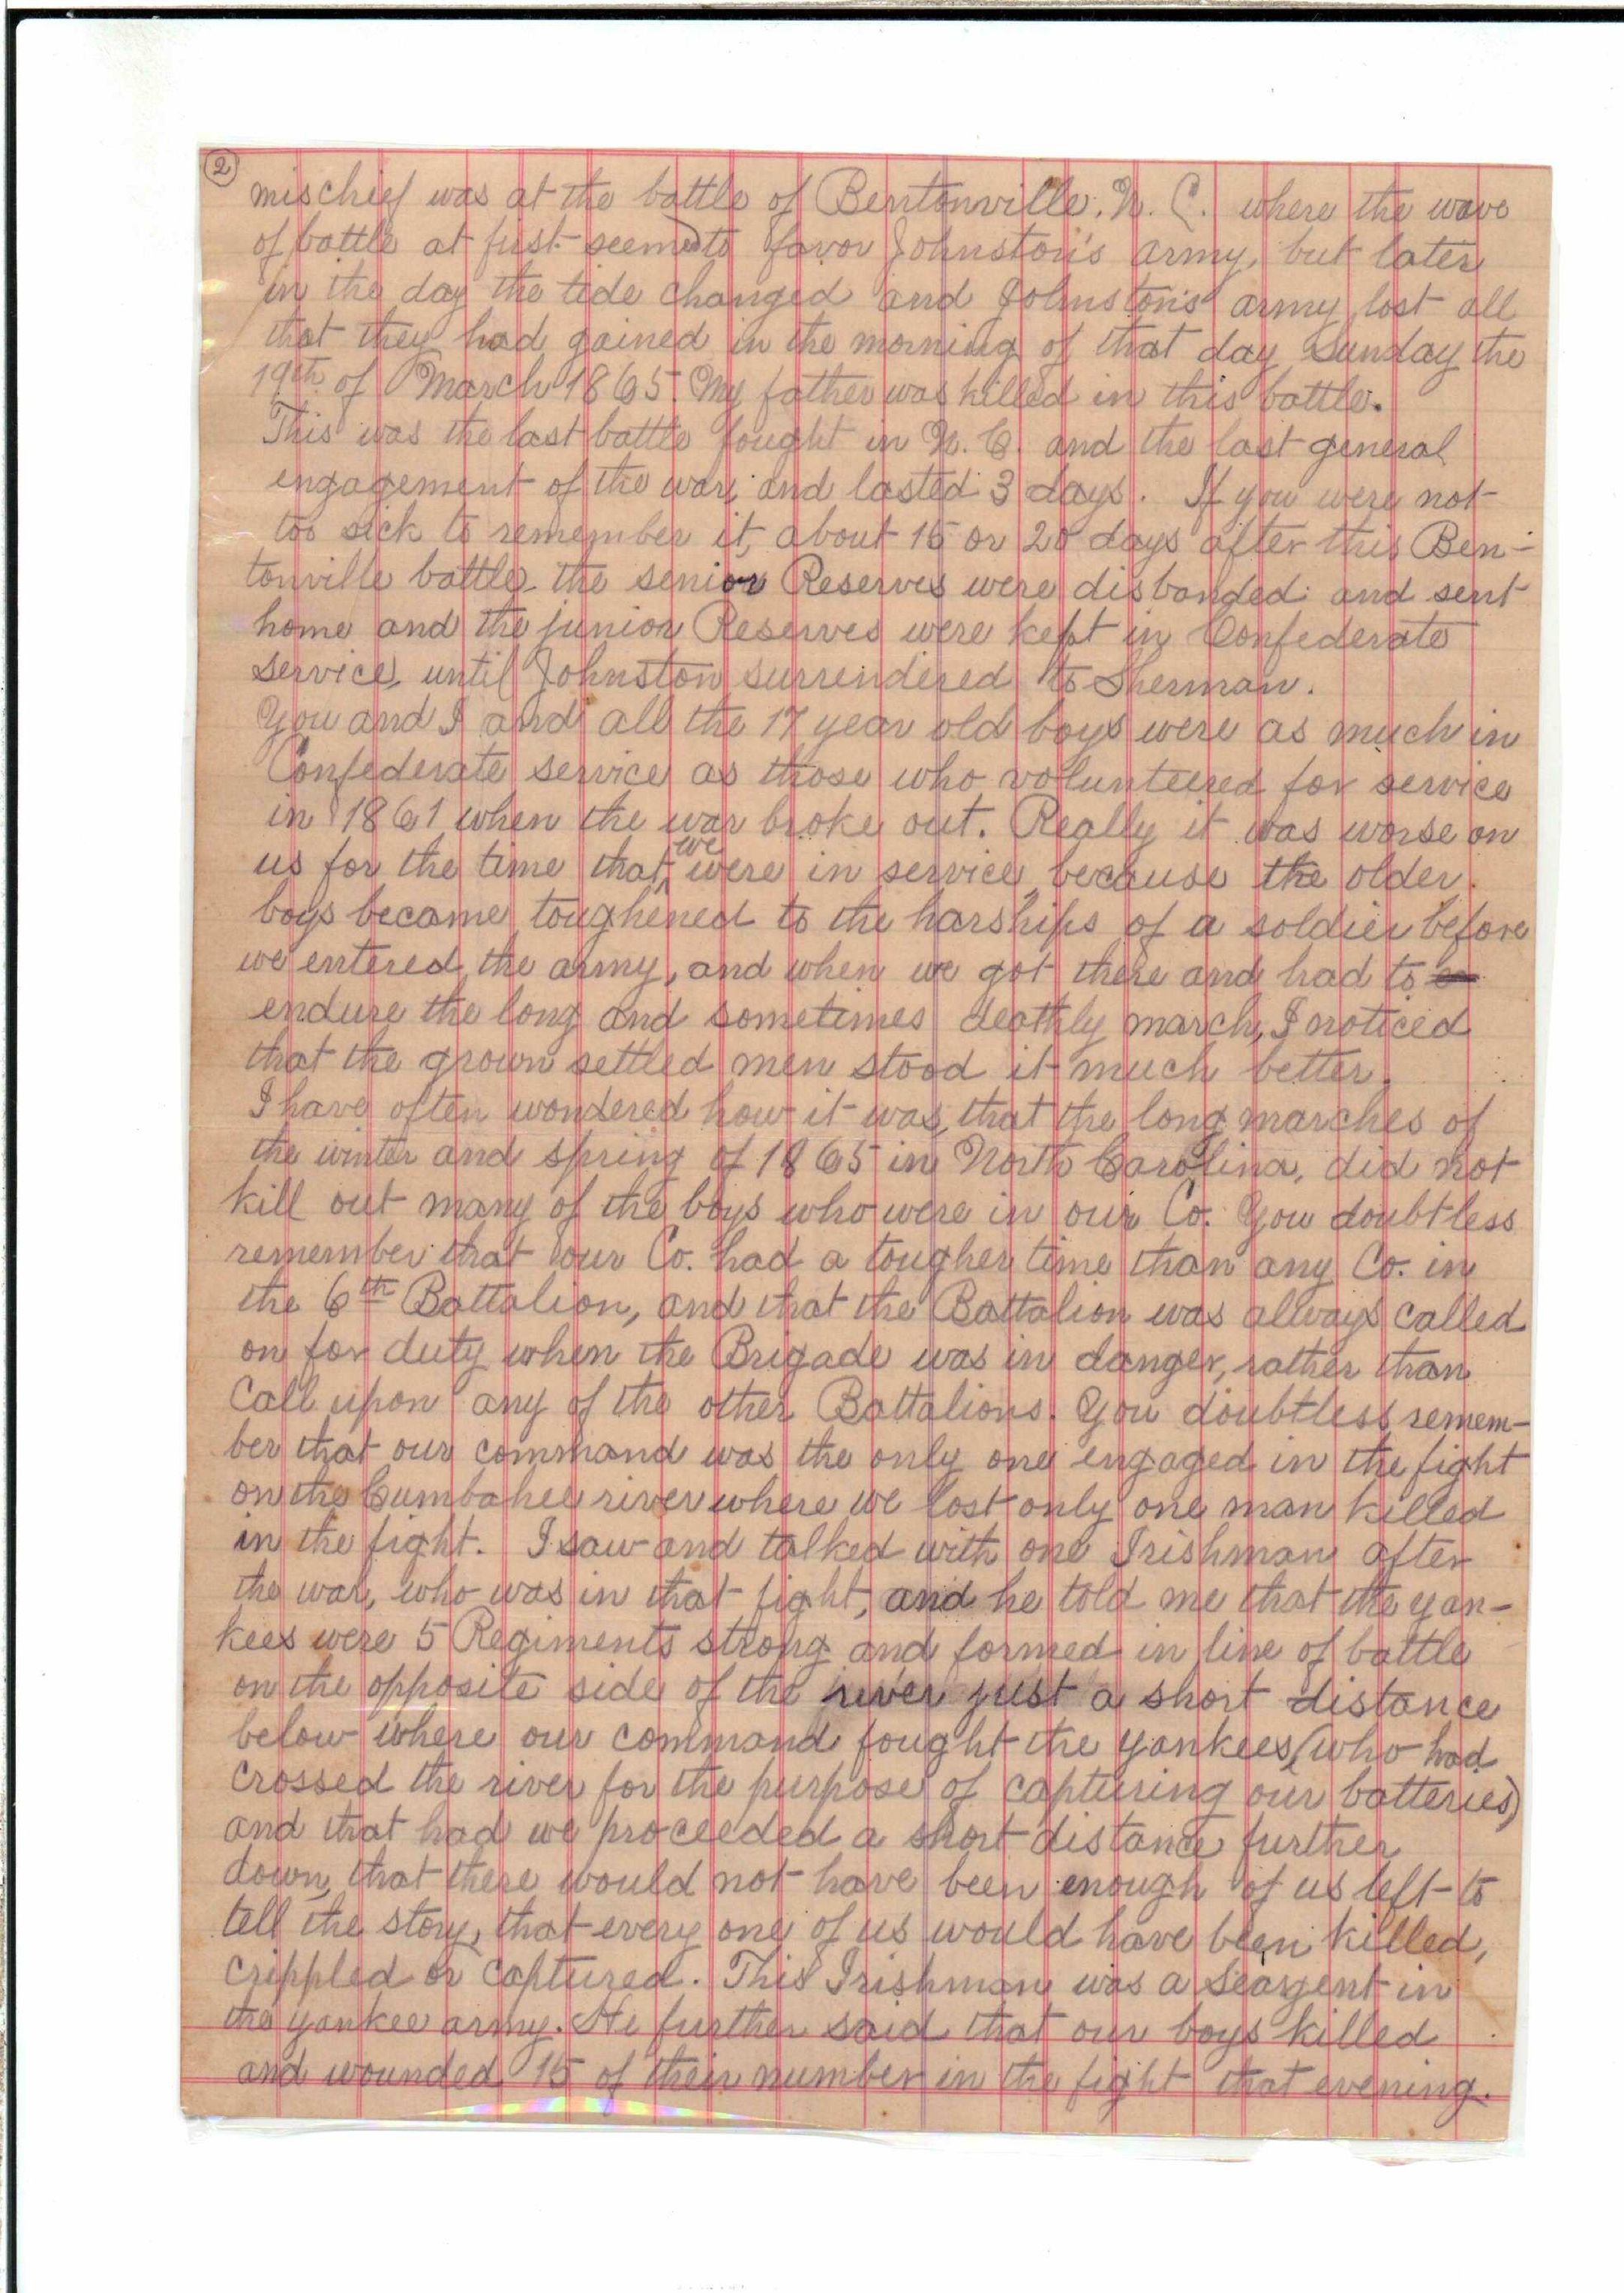 2
mischief was at the battle of Bentonville, N. C. where the wave
of battle at first seemed to favor Johnston's army, but later
in the day the tide changed and Johnston's army lost all
that they had gained in the morning of that day Sunday the
19th of March 1865. My father was killed in this battle.
This was the last battle fought in N. C. and the last general
engagement of the war, and lasted 3 days. If you were not
too sick to remember it, about 15 or 20 days after this Ben-
tonville battle the senior Reserves were disbanded and sent
home and the junior Reserves were kept in Confederate
service, until Johnston surrendered to Sherman.
You and I and all the 17 year old boys were as much in
Confederate service as those who volunteered for service
in 1861 when the war broke out. Really it was worse on
us for the time that we were in service, because the older
boys became toughened to the harships of a soldier before
we entered the army, and when we got there and had to
endure the long and sometimes deathly march, I noticed
that the grown settled men stood it much better.
I have often wondered how it was, that the long marches of
the winter and spring of 1865 in North Carolina, did not
kill out many of the boys who were in our Co. You doubtless
remember that our Co. had a tougher time than any Co. in
the 6th Battalion, and that the Battalion was always called
on for duty when the Brigade was in danger, rather than
call upon any of the other Battalions. You doubtless remem-
ber that our command was the only one engaged in the fight
on the Cumbahee river where we lost only one man killed
in the fight. I saw and talked with one Irishman after
the war, who was in that fight, and he told me that the yan-
kees were 5 Regiments strong and formed in line of battle
on the opposite side of the river just a short distance
below where our command fought the yankees (who had
crossed the river for the purpose of capturing our batteries)
and that had we proceeded a short distance further
down, that there would not have been enough of us left to
tell the story, that every one of us would have been killed,
crippled or captured. This Irishman was a Seargent in
the yankee army. He further said that our boys killed
and wounded 15 of their number in the fight that evening.